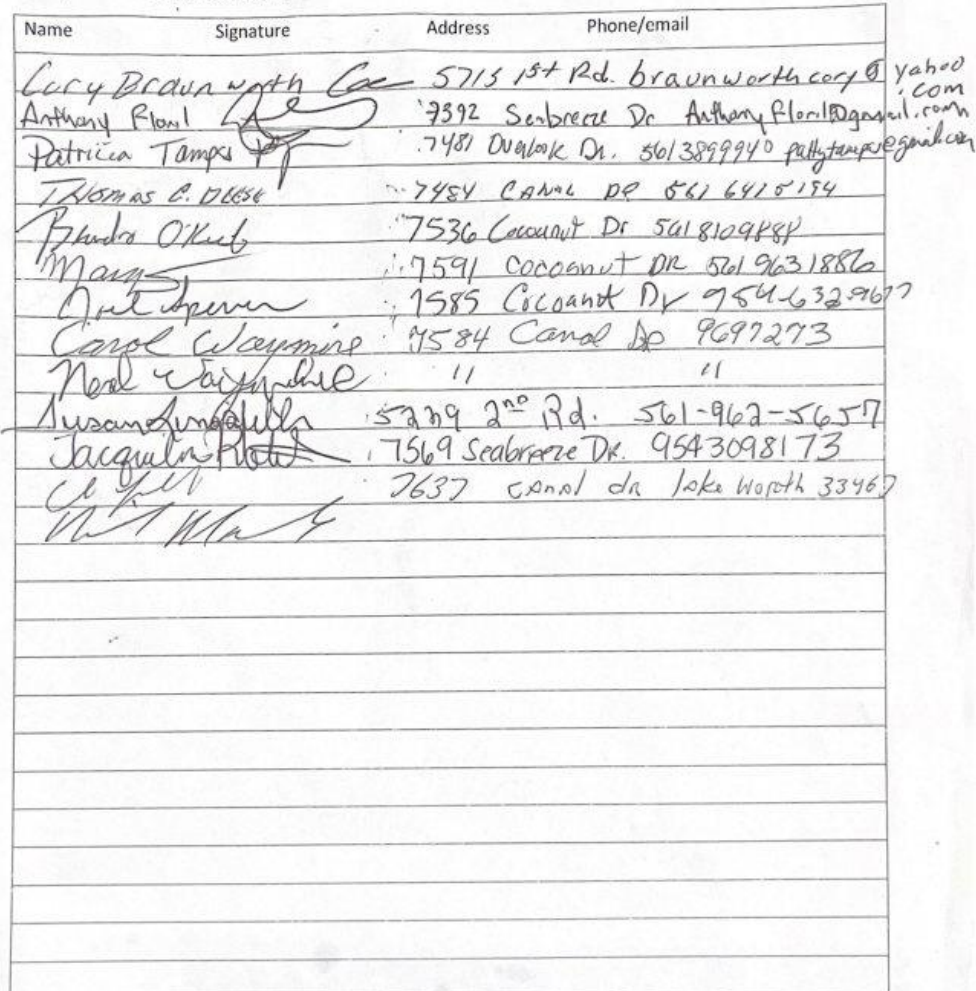 Name Signature Address Phone/email
Cory Braunworth 5715 1st Rd. braunworthcory@yahoo.com
Anthony 7392 Seabreeze Dr
Patricia Tampa 7481 Overlook Dr. 5613899940
THOMAS C. DEESE 7484 CANAL DR 561 6415154
O'Keefe 7536 Cocoanut Dr 5618109888
Mary 7591 Cocoanut DR 5619631886
7585 Cocoanut Dr 954-632-9677
Carol Waymire 7584 Canal Dr 9697273
Neal Waymire " "
Susan 5239 2nd Rd. 561-962-5657
Jacquelin 7569 Seabreeze Dr. 9543098173
7637 canal dr lake Worth 33467